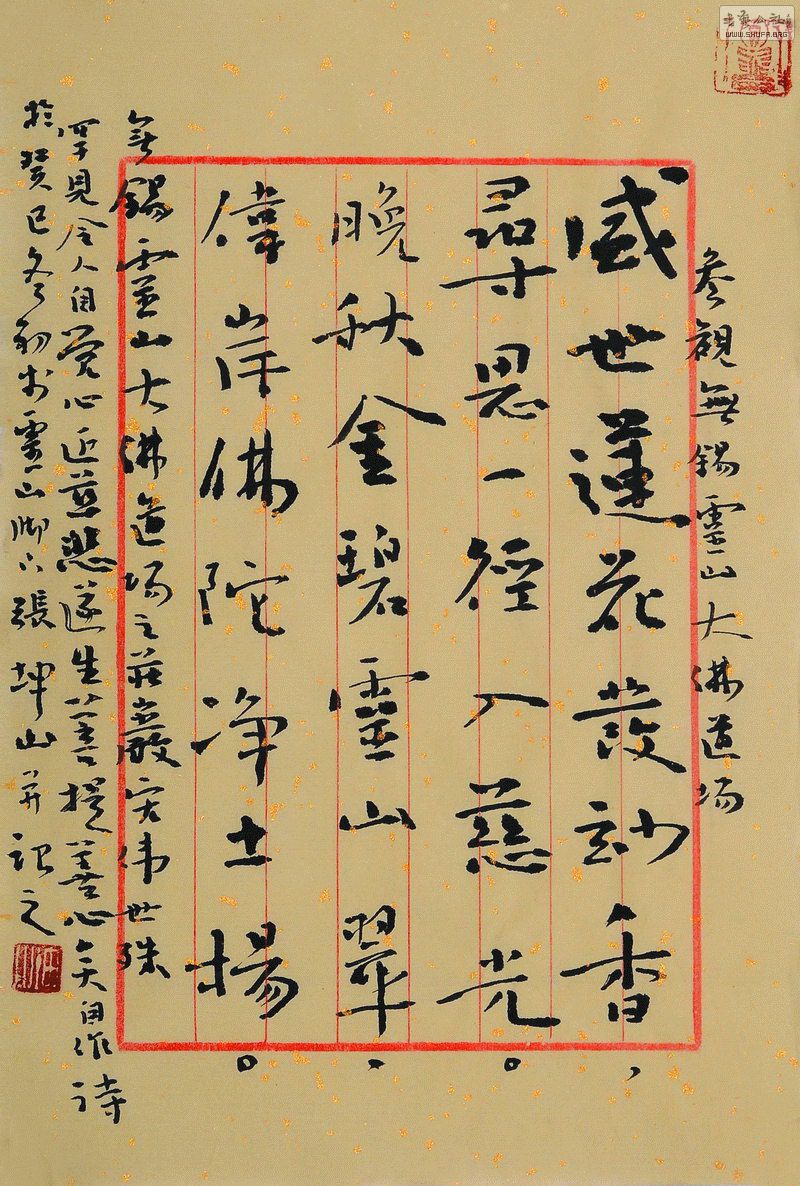 參觀無錫靈山大佛道场
盛世蓮花發玅香，
尋思一徑入慈光。
晚秋金碧靈山翠、
偉岸佛陀净土揚。
無錫靈山大佛道场之莊嚴宏伟世殊
罕見令人自觉心近慈悲遂生菩提善心矣自作诗
於癸巳冬初书靈山脚下張坤山并记之
WWW.SHUFA.ORG